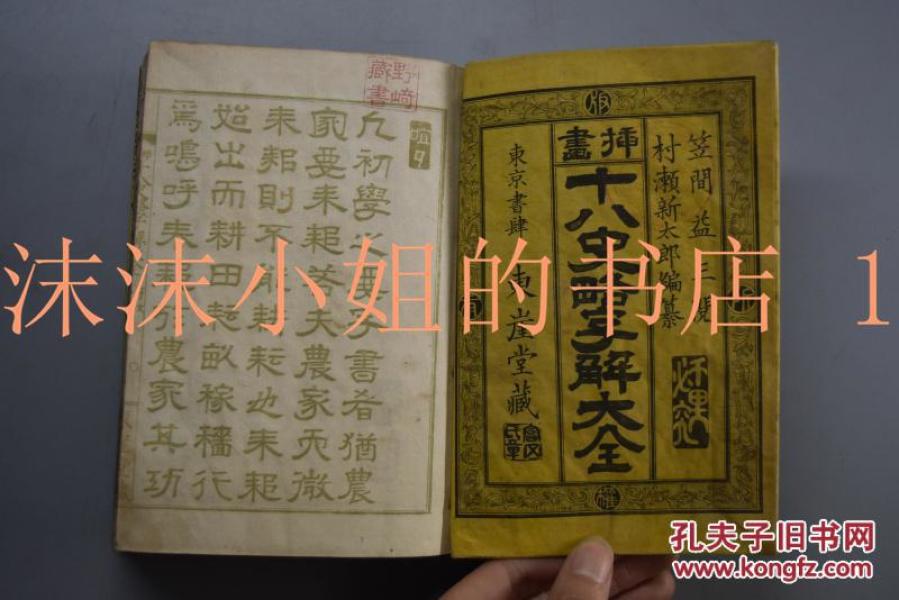 版
權
笠間益三閲
村瀬新太郎編纂
挿畫
十八史略字解大全
東京書肆 東崖堂藏
野崎
藏書
凡初學之要字書者猶農
家要耒耜若夫農家 微
耒耜則不能耕耘也耒耜
始出而耕田起畝稼穡行
爲嗚呼耒耜行農家其功
沫沫小姐的书店 1
孔夫子旧书网
www.kongfz.com